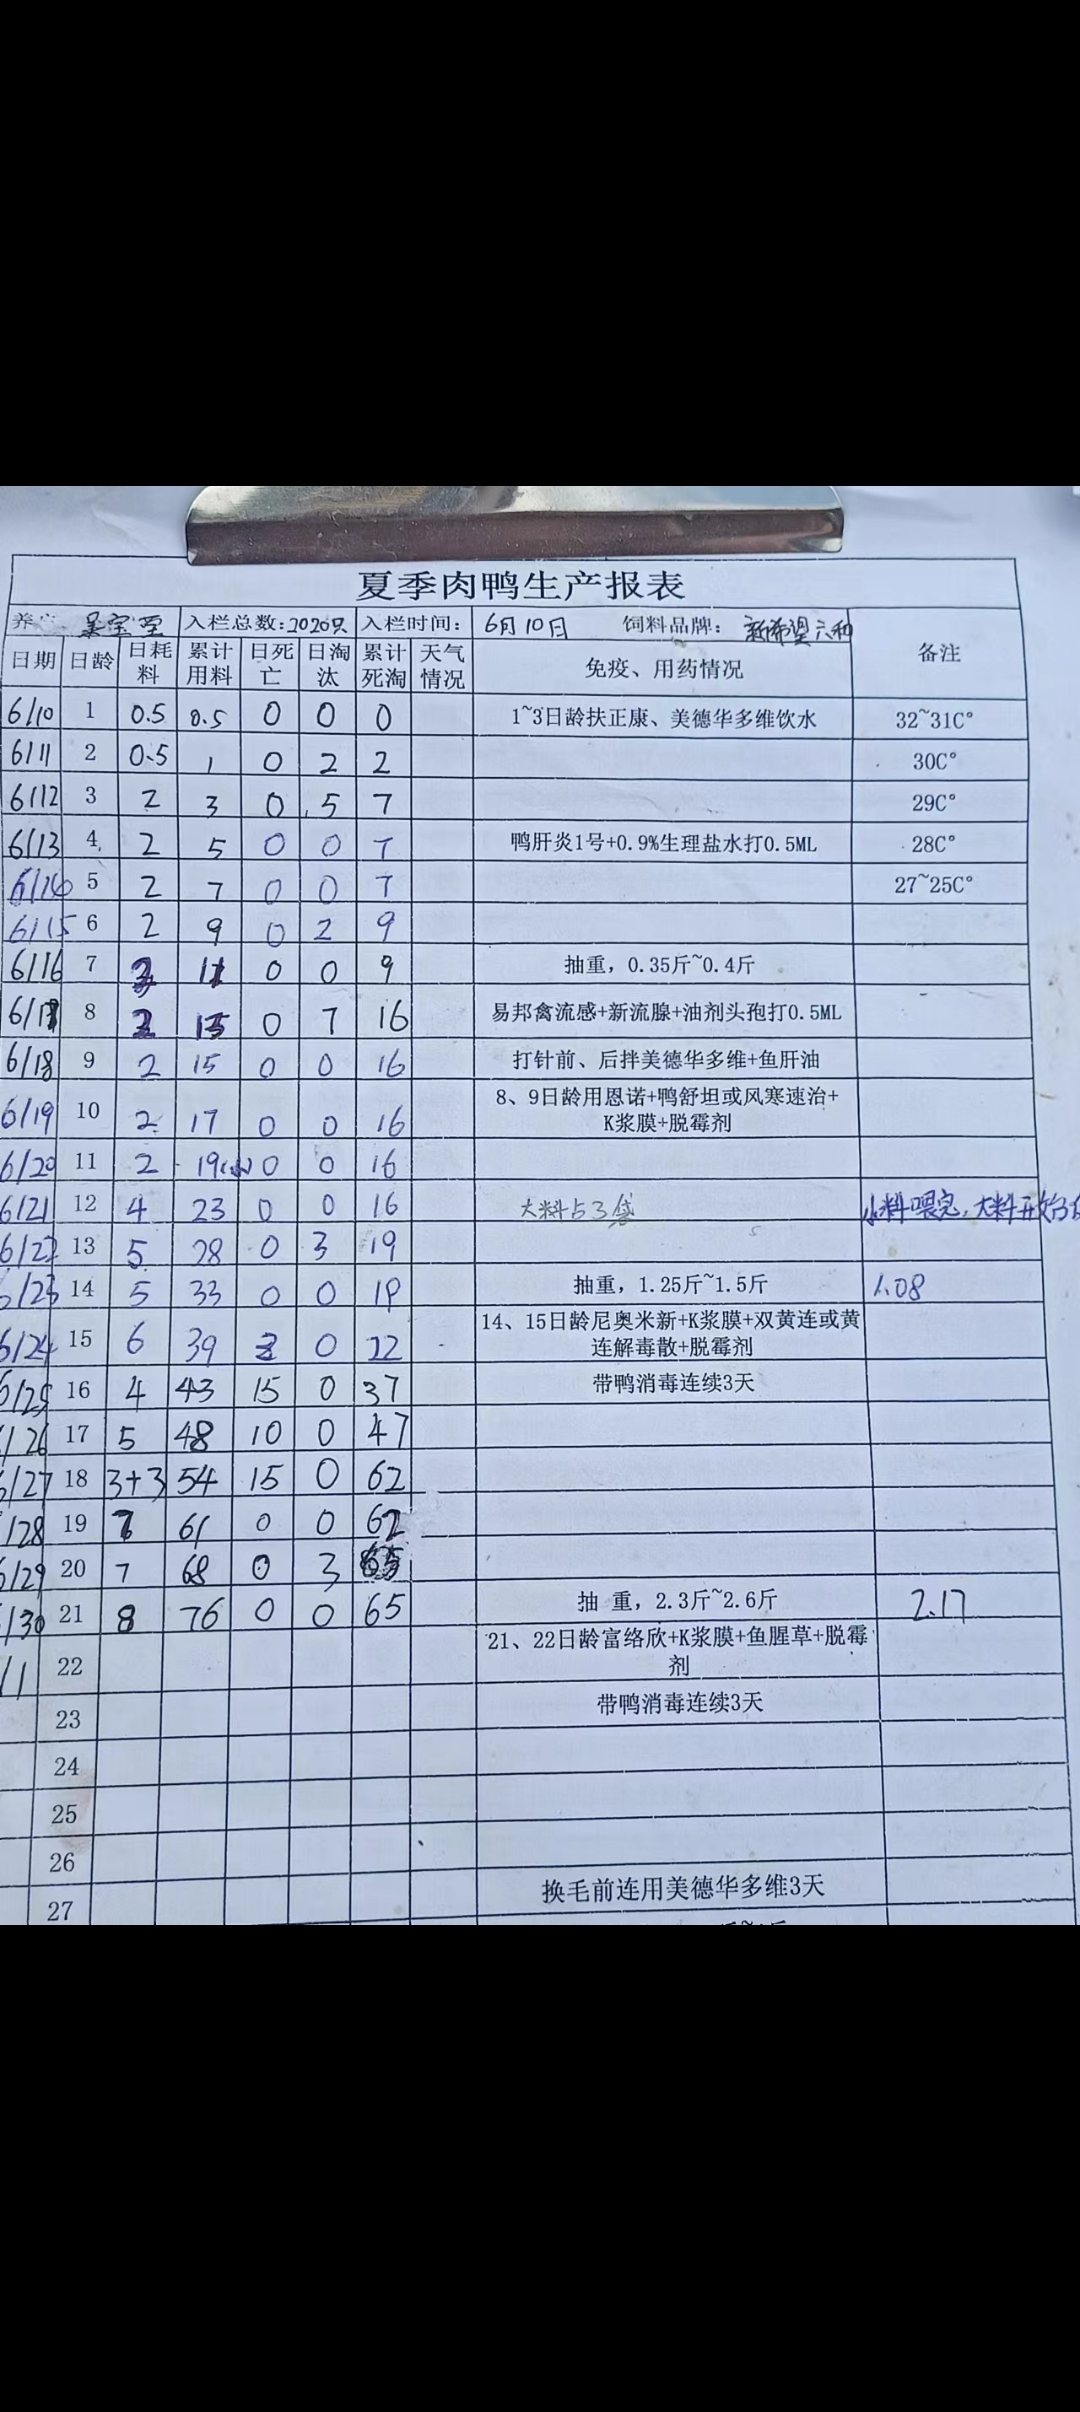 夏季肉鸭生产报表
养 入栏总数:2020只 入栏时间: 6月10日 饲料品牌: 新希望六和 备注
日期 日龄 日耗料 累计用料 日死亡 日淘汰 累计死淘 天气情况 免疫、用药情况
6/10 1 0.5 0.5 0 0 0 1~3日龄扶正康、美德华多维饮水 32~31C°
6/11 2 0.5 1 0 2 2 30C°
6/12 3 2 3 0 5 7 29C°
6/13 4 2 5 0 0 7 鸭肝炎1号+0.9%生理盐水打0.5ML 28C°
6/14 5 2 7 0 0 7 27~25C°
6/15 6 2 9 0 2 9
6/16 7 2 11 0 0 9 抽重，0.35斤~0.4斤
6/17 8 2 13 0 7 16 易邦禽流感+新流腺+油剂头孢打0.5ML
6/18 9 2 15 0 0 16 打针前、后拌美德华多维+鱼肝油
6/19 10 2 17 0 0 16 8、9日龄用恩诺+鸭舒坦或风寒速治+
K浆膜+脱霉剂
6/20 11 2 19 0 0 16
6/21 12 4 23 0 0 16 大料占3袋 小料喂完,大料开始
6/22 13 5 28 0 3 19
6/23 14 5 33 0 0 19 抽重，1.25斤~1.5斤 1.08
6/24 15 6 39 3 0 22 14、15日龄尼奥米新+K浆膜+双黄连或黄
连解毒散+脱霉剂
6/25 16 4 43 15 0 37 带鸭消毒连续3天
6/26 17 5 48 10 0 47
6/27 18 3+3 54 15 0 62
/28 19 7 61 0 0 62
/29 20 7 68 0 3 65
/30 21 8 76 0 0 65 抽 重，2.3斤~2.6斤 2.17
/1 22 21、22日龄富络欣+K浆膜+鱼腥草+脱霉
剂
23 带鸭消毒连续3天
24
25
26
27 换毛前连用美德华多维3天